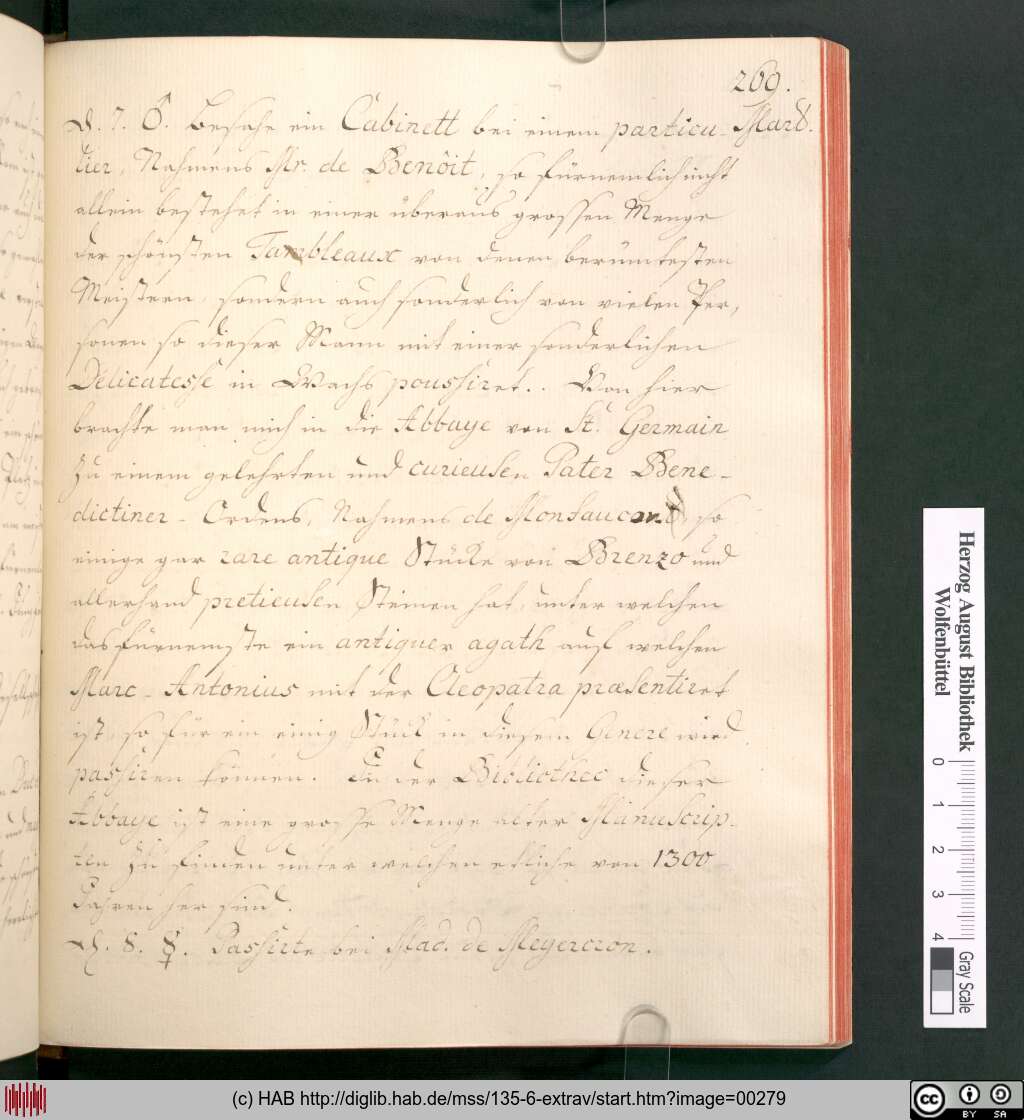 269.
Mart.
D. 7. ♂. Besahe ein Cabinett bei einem particu-
lier, Nahmens Mr. de Benôit, so fürnemlich nicht
allein bestehet in einer überaus grossen Menge
der schönsten Tambleaux von denen berümtesten
Meistern, sondern auch sonderlich von vielen Per,
sonen so dieser Mann mit einer sonderlichen
Delicatesse in Wachs poussiret.. Von hier
brachte man mich in die Abbaye von St. Germain
zu einem gelehrten und curieusen Pater Bene-
dictiner-Ordens, Nahmens de Monfaucon so
einige gar rare antique Stücke von Brenzo und
allerhand pretieusen Steinen hat, unter welchen
das fürnemste ein antiquer agath auf welchen
Marc-Antonius mit der Cleopatra præsentiret
ist, so für ein einig Stück in diesem Genere wird
passiren können. In der Bibliothec dieser
Abbaye ist eine grosse Menge alter Manuscrip-
ten zu finden unter welchen etliche von 1300
Jahren her sind.
D. 8. ☿. Passirte bei Mad. de Meyercron.
Herzog August Bibliothek
Wolfenbüttel
0 1 2 3 4
Gray Scale
(c) HAB http://diglib.hab.de/mss/135-6-extrav/start.htm?image=00279
cc BY SA